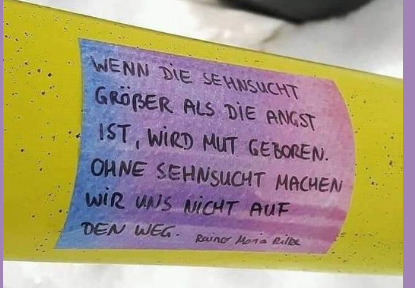 WENN DIE SEHNSUCHT
GRÖßER ALS DIE ANGST
IST, WIRD MUT GEBOREN.
OHNE SEHNSUCHT MACHEN
WIR UNS NICHT AUF
DEN WEG. Rainer Maria Rilke